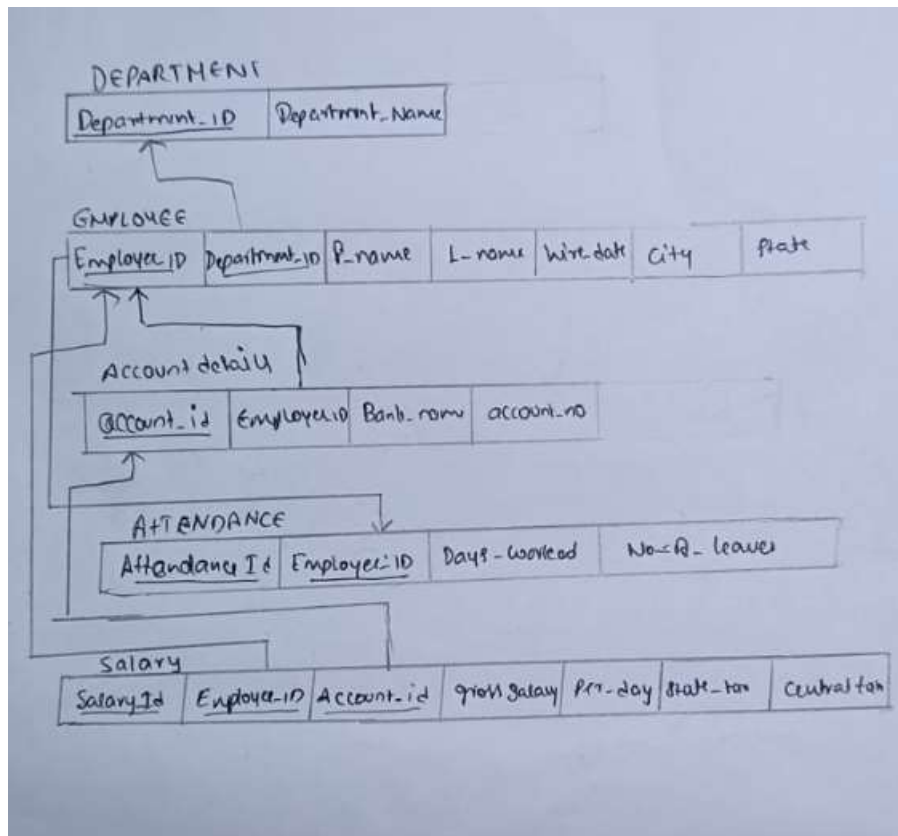 DEPARTMENT
Department_ID Department_Name
EMPLOYEE
Employee_ID Department_ID F_name L_name hire_date City State
Account details
account_id Employee_ID Bank_name account_no
ATTENDANCE
Attendance Id Employee_ID Days_worked No_of_leaves
Salary
Salary_Id Employee_ID Account_id gross salary Per_day State_tax Central tax